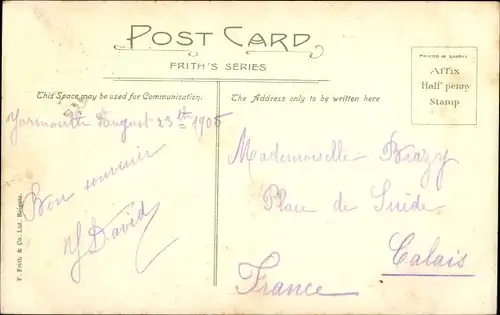 POST CARD
FRITH'S SERIES
This Space may be used for Communication.
The Address only to be written here
PRINTED IN SAXONY
Affix
Half penny
Stamp
Yarmouth August 23th 1905
Bon souvenir
David
Mademoiselle Brazy
Place de Suède
Calais
France
F. Frith & Co. Ltd. Reigate.